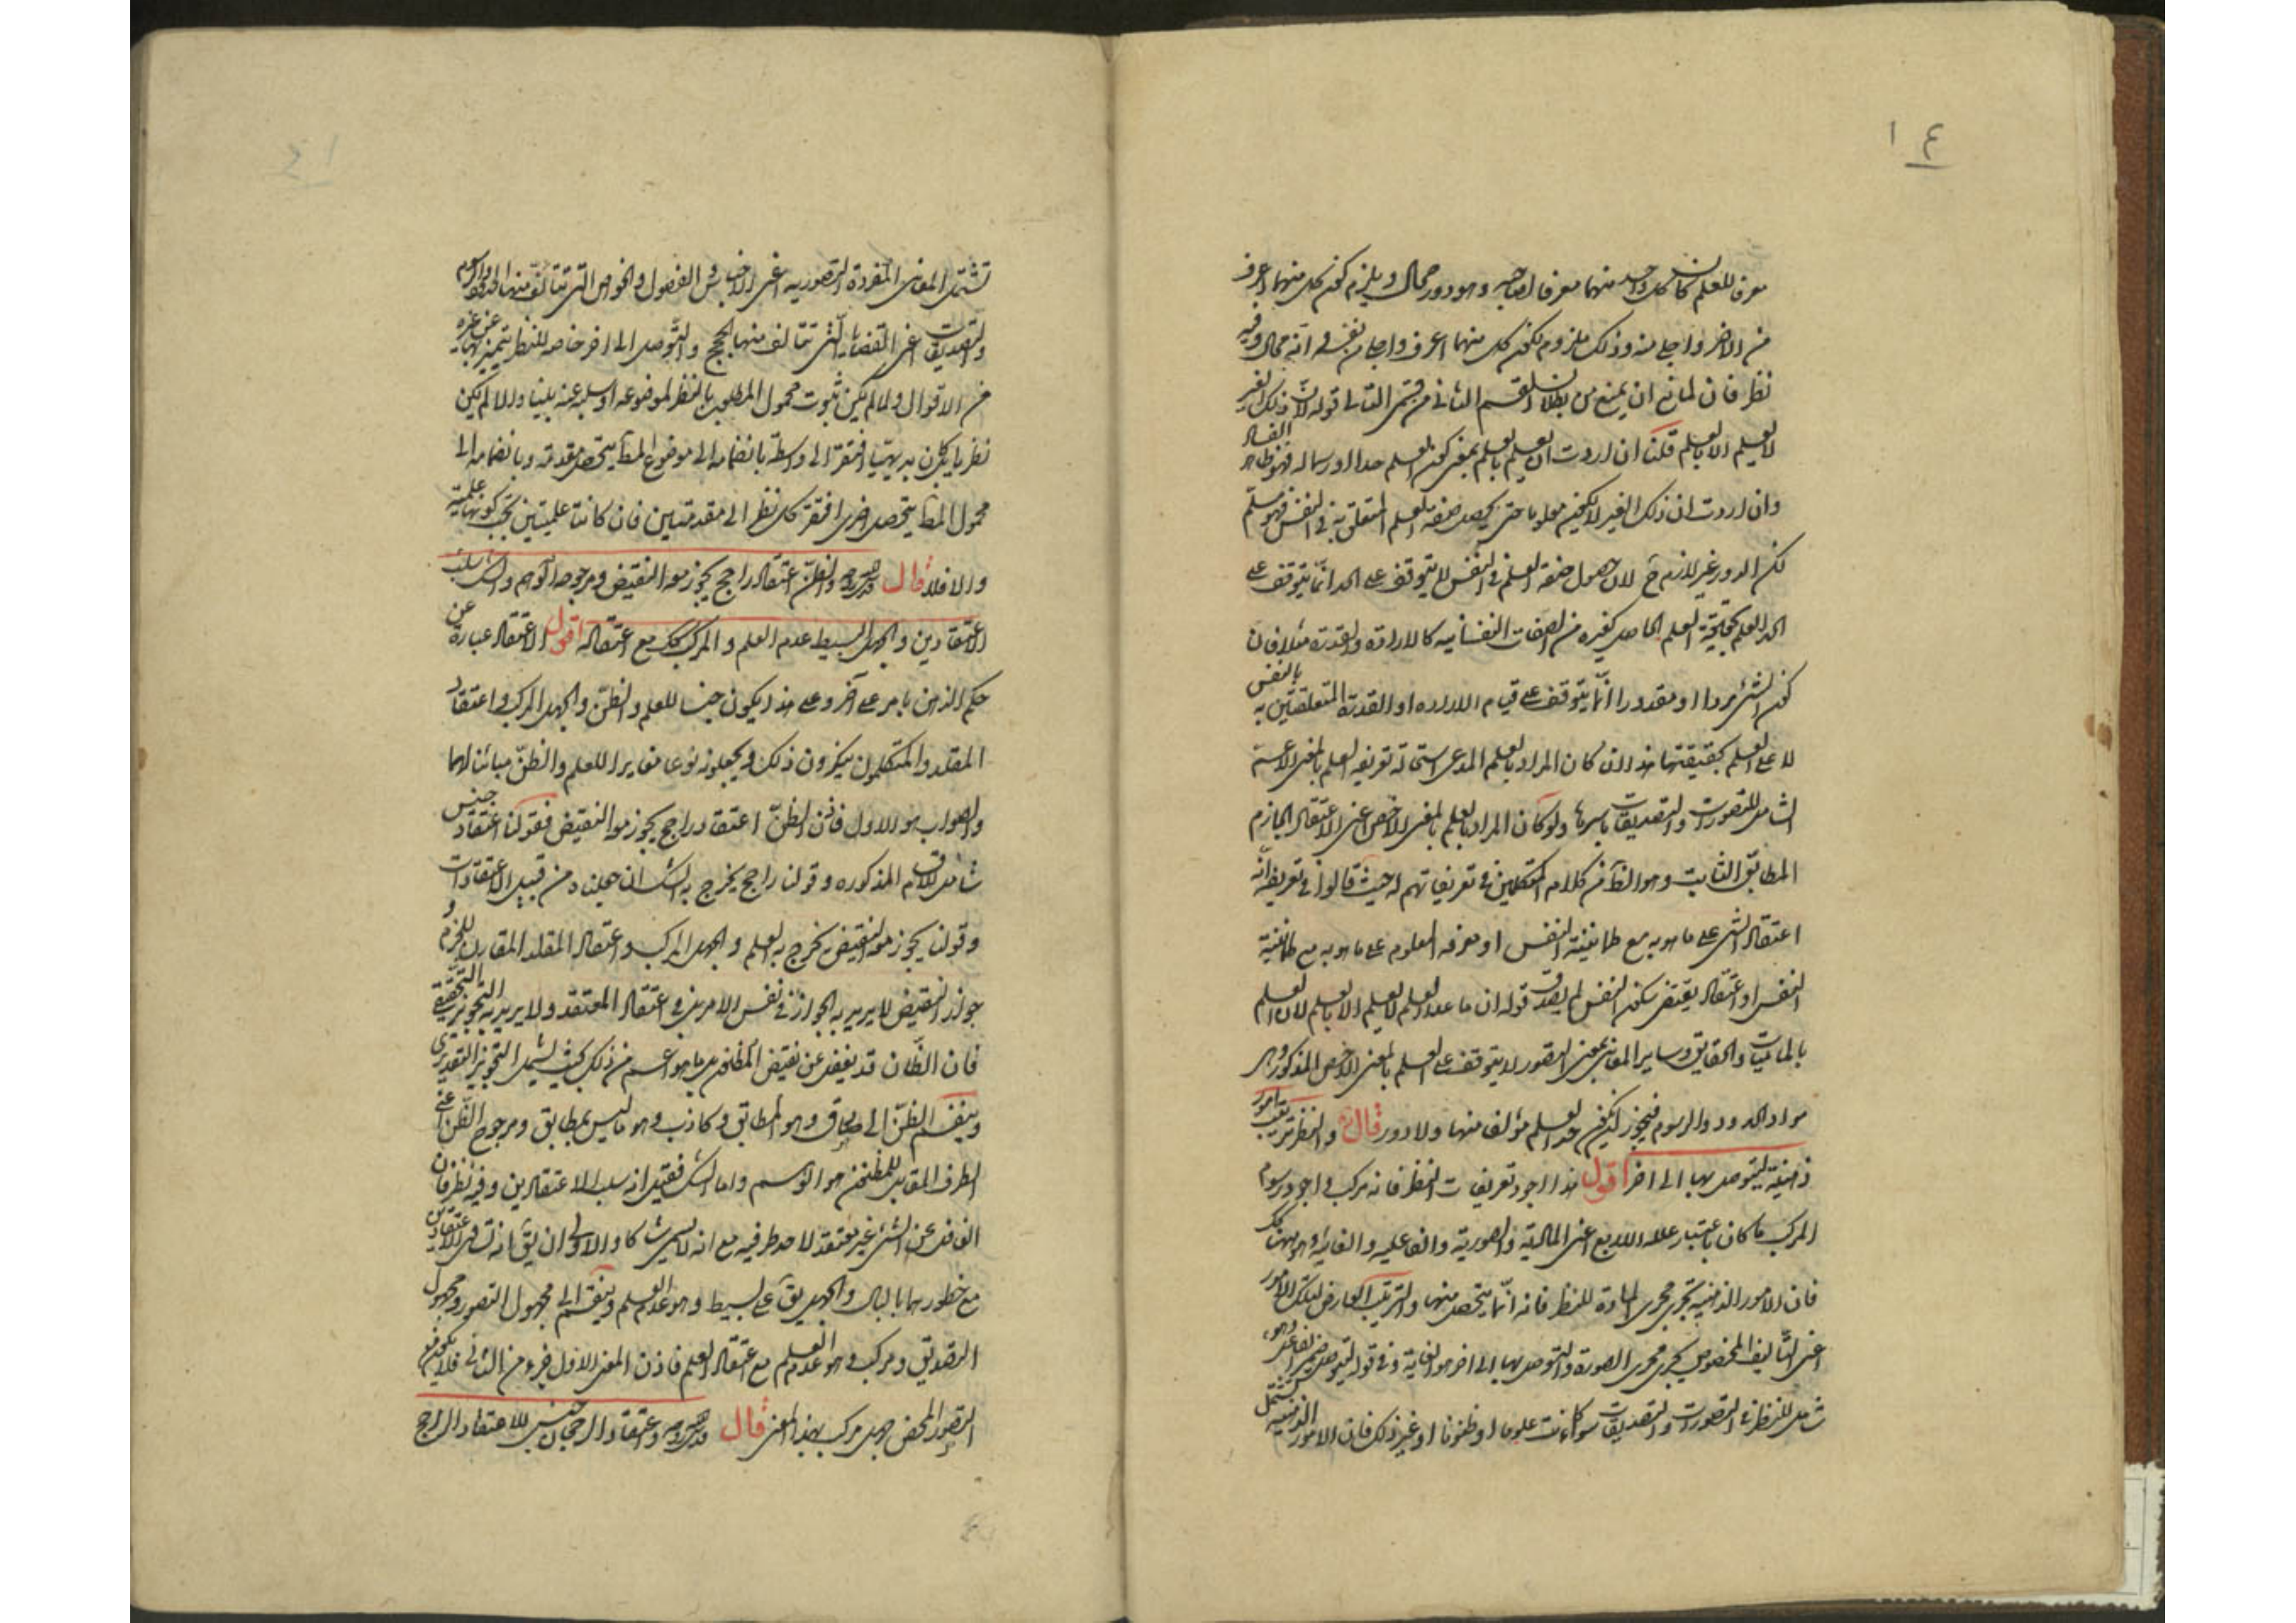 ١٤
معرفا للعلم كان كل واحد منهما معرفا لصاحبه وهو دور محال ويلزم كون كل منهما اعرف
من الاخر واجلى منه وذلك ملزوم لكون كل منهما اعرف واجلى من نفسه في انه محال وفيه
نظر فان لمانع ان يمنع من بطلان القسم الثاني من قسمي التالي قوله لان ذلك الغير
لا يعلم الا بالعلم قلنا ان اردت ان العلم بالعلم بمعنى كون العلم حدا له او رسما له فهو ظاهر الفساد
وان اردت ان ذلك الغير لا يكون معلوما حتى يحصل صفة العلم المتعلق به في النفس فهو مسلم
لكن الدور غير لازم ح لان حصول صفة العلم في النفس لا يتوقف على الحد انما يتوقف على
الحد العلم بحقيقة العلم الحاصل كغيره من الصفات النفسانيه كالارادة والقدرة مثلا فان
كون الشئ مرادا او مقدورا انما يتوقف على قيام الارادة او القدرة المتعلقتين به بالنفس
لا على العلم بحقيقتها هذا ان كان المراد بالعلم المدعى استحالة تعريفه العلم بالمعنى الاعم
الشامل للتصورات والتصديقات باسرها ولو كان المراد بالعلم بالمعنى الاخص اعنى الاعتقاد الجازم
المطابق الثابت وهو الظ من كلام المتكلمين في تعريفاتهم له حيث قالوا في تعريفه انه
اعتقاد الشئ على ما هو به مع طمانينة النفس او معرفة المعلوم على ما هو به مع طمانينة
النفس او اعتقاد يقتضى سكون النفس لم يصدق قوله ان ما عدا العلم لا يعلم الا بالعلم لان العلم
بالماهيات والحقايق وساير المعانى بمعنى التصور لا يتوقف على العلم بالمعنى الاخص المذكور وهى
مواد الحدود والرسوم فيجوز ان يكون حد العلم مؤلف منها ولا دور قال والنظر ترتيب امور
ذهنية ليتوصل بها الى اخر اقول هذا اجود تعريفات النظر فانه مركب واجود رسوم
المركب ما كان باعتبار علله الاربع اعنى المادية والصورية والفاعلية والغائية وهو هنا كك
فان الامور الذهنية تجرى مجرى المادة للنظر فانه انما يتحصل منها والترتيب العارض لتلك الامور
اعنى التأليف المخصوص يجرى مجرى الصورة والتوصل بها الى اخر هو الغاية وفي قوله ليتوصل ضمير الفاعل وهو
شامل للنظر في التصورات والتصديقات سواء كانت علوما او ظنونا او غير ذلك فان الامور الذهنية تشتمل
تشتمل المعانى المفردة التصوريه اعنى الاجناس والفصول والخواص التى تتألف منها الحدود والرسوم
والتصديقات اعنى القضايا التى تتألف منها الحجج والتوصل الى اخر خاصه للنظر يتميز بها عن غيره
من الاقوال ولما لم يكن ثبوت محمول المطلوب بالنظر لموضوعه او سلبه عنه بينا والا لم يكن
نظريا بل كان بديهيا افتقر الى واسطة بانضمامه الى موضوع المط يتحصل مقدمة وبانضمامه الى
محمول المط يتحصل اخرى افتقر كل نظر الى مقدمتين فان كانتا علميتين يجب كونها علمية
والا فلا قال قدس سره والظن اعتقاد راجح يجوز معه النقيض ومرجوحه الوهم والشك سلب
الاعتقادين والجهل البسيط عدم العلم والمركب كك مع اعتقاده اقول الاعتقاد عبارة عن
حكم الذهن بامر على آخر وعلى هذا يكون جنسا للعلم والظن والجهل المركب واعتقاد
المقلد والمتكلمون ينكرون ذلك ويجعلونه نوعا مغايرا للعلم والظن مباينا لهما
والصواب هو الاول فاذن الظن اعتقاد راجح يجوز معه النقيض فقولنا اعتقاد جنس
شامل للاقسام المذكوره وقولنا راجح يخرج به الشك ان جعلناه من قبيل الاعتقادات
وقولنا يجوز معه النقيض يخرج به العلم والجهل المركب واعتقاد المقلد المقارن للجزم و
جواز النقيض لا يريد به الجواز في نفس الامر بل في اعتقاد المعتقد ولا يريد به التجويز التحقيقى
فان الظان قد يغفل عن نقيض المظنون بل ما هو اعم من ذلك بحيث يشمل التجويز التقديرى
وينقسم الظن الى صادق وهو المطابق وكاذب وهو ما ليس بمطابق ومرجوح الظن اعنى
الطرف المقابل للمظنون هو الوهم واما الشك فقيل انه سلب الاعتقادين وفيه نظر فان
الغافل عن الشئ غير معتقد لاحد طرفيه مع انه لا يسمى شاكا والاولى ان يق انه تساوى الاعتقادين
مع خطورهما بالبال والجهل يق على بسيط وهو عدم العلم وينقسم الى مجهول التصور ومجهول
التصديق ومركب وهو عدم العلم مع اعتقاد العلم فاذن المعنى الاول جزء من الثانى فلا يكون
التصور المحض جهل مركب بهذا المعنى قال قدس سره واعتقاد الرجحان جنس للاعتقاد الراجح